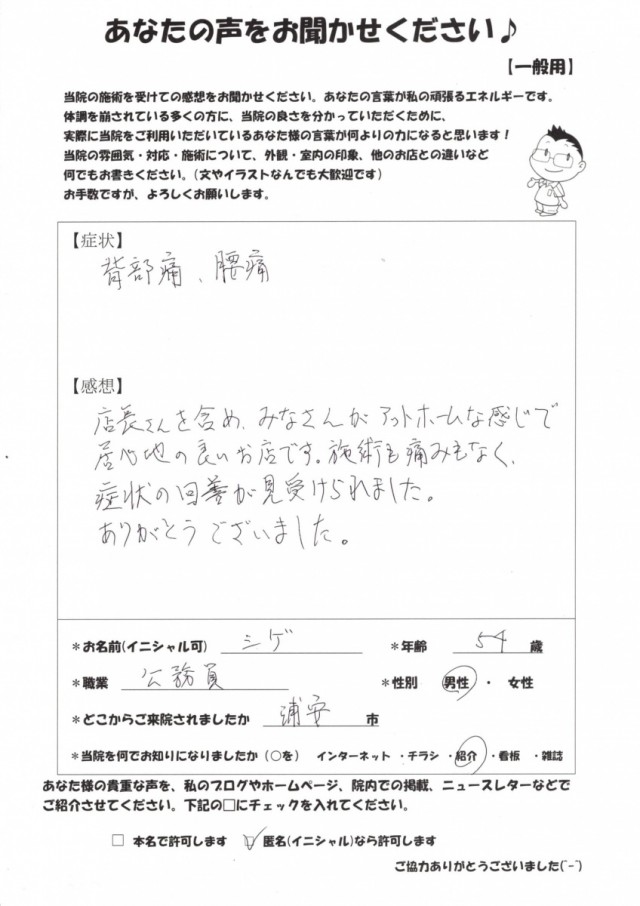 あなたの声をお聞かせください♪
【一般用】
当院の施術を受けての感想をお聞かせください。あなたの言葉が私の頑張るエネルギーです。
体調を崩されている多くの方に、当院の良さを分かっていただくために、
実際に当院をご利用いただいているあなた様の言葉が何よりの力になると思います！
当院の雰囲気・対応・施術について、外観・室内の印象、他のお店との違いなど
何でもお書きください。(文やイラストなんでも大歓迎です)
お手数ですが、よろしくお願いします。
【症状】
背部痛、腰痛
【感想】
店長さんを含め、みなさんがアットホームな感じで
居心地の良いお店です。施術も痛みもなく、
症状の回善が見受けられました。
ありがとうございました。
＊お名前(イニシャル可) シゲ ＊年齢 54 歳
＊職業 公務員 ＊性別 男性 ・ 女性
＊どこからご来院されましたか 浦安 市
＊当院を何でお知りになりましたか（○を） インターネット ・チラシ ・紹介 ・看板 ・雑誌
あなた様の貴重な声を、私のブログやホームページ、院内での掲載、ニュースレターなどで
ご紹介させてください。下記の□にチェックを入れてください。
□ 本名で許可します ☑ 匿名(イニシャル)なら許可します
ご協力ありがとうございました(^-^)